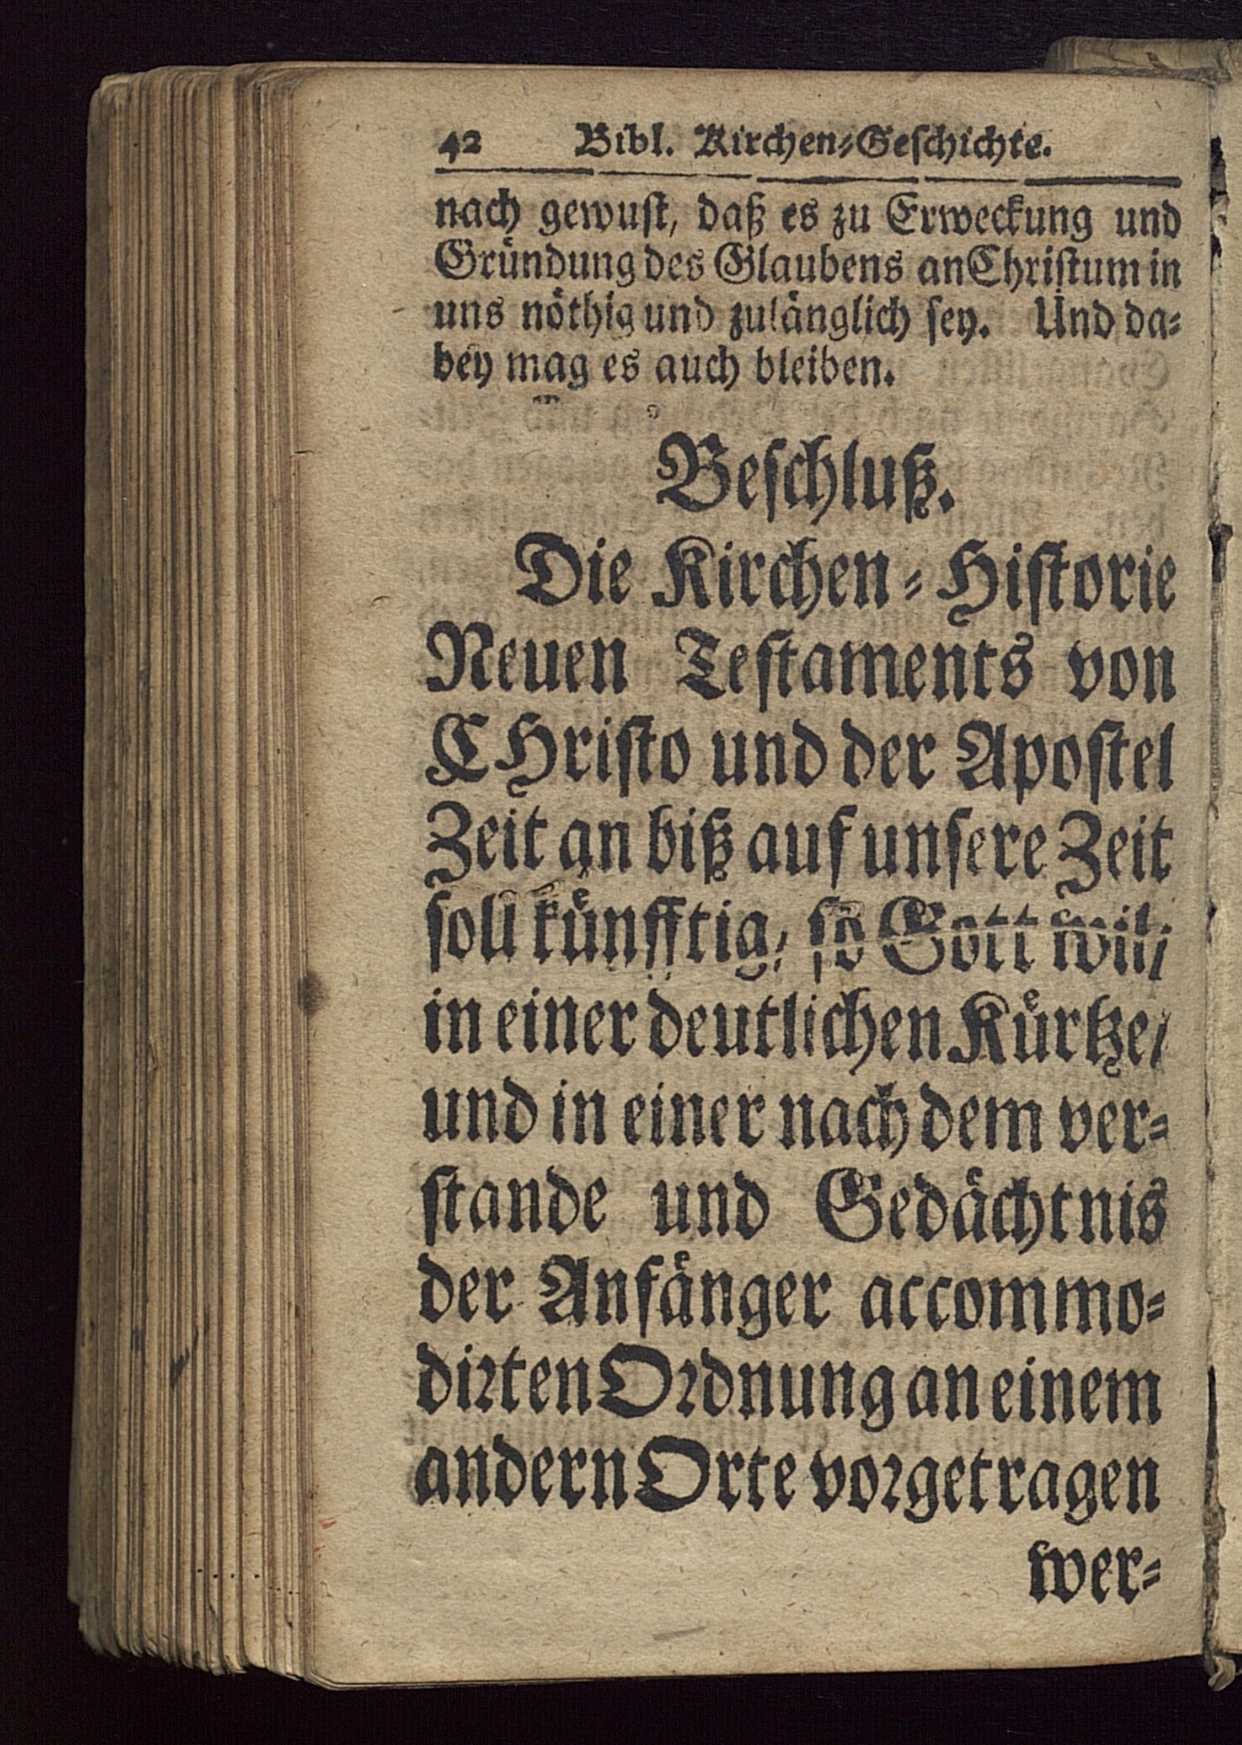 42 Bibl. Kirchen-Geschichte.
nach gewust, daß es zu Erweckung und
Gründung des Glaubens an Christum in
uns nöthig und zulänglich sey. Und da-
bey mag es auch bleiben.
Beschluß.
Die Kirchen-Historie
Neuen Testaments von
CHristo und der Apostel
Zeit an biß auf unsere Zeit
soll künfftig, so Gott will/
in einer deutlichen Kürtze/
und in einer nach dem ver-
stande und Gedächtnis
der Anfänger accommo-
dirten Ordnung an einem
andern Orte vorgetragen
wer-